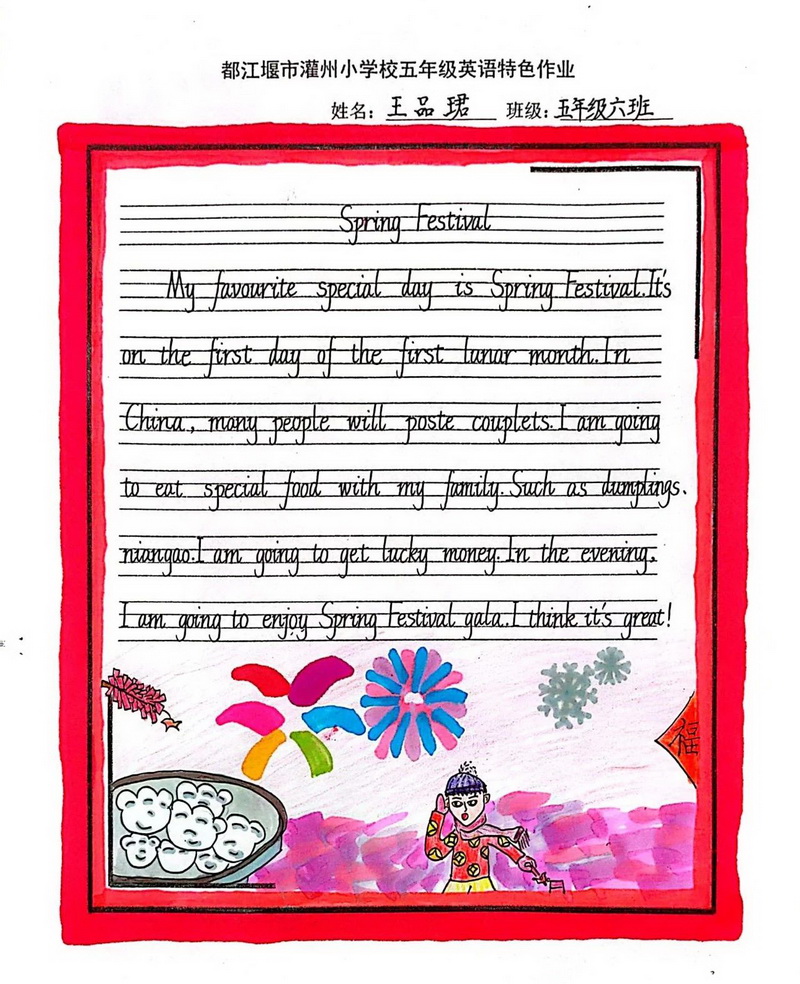 都江堰市灌州小学校五年级英语特色作业
姓名：王品珺 班级：五年级六班
Spring Festival
My favourite special day is Spring Festival. It's
on the first day of the first lunar month. In
China, many people will poste couplets. I am going
to eat special food with my family. Such as dumplings.
niangao. I am going to get lucky money. In the evening,
I am going to enjoy Spring Festival gala. I think it's great!
福